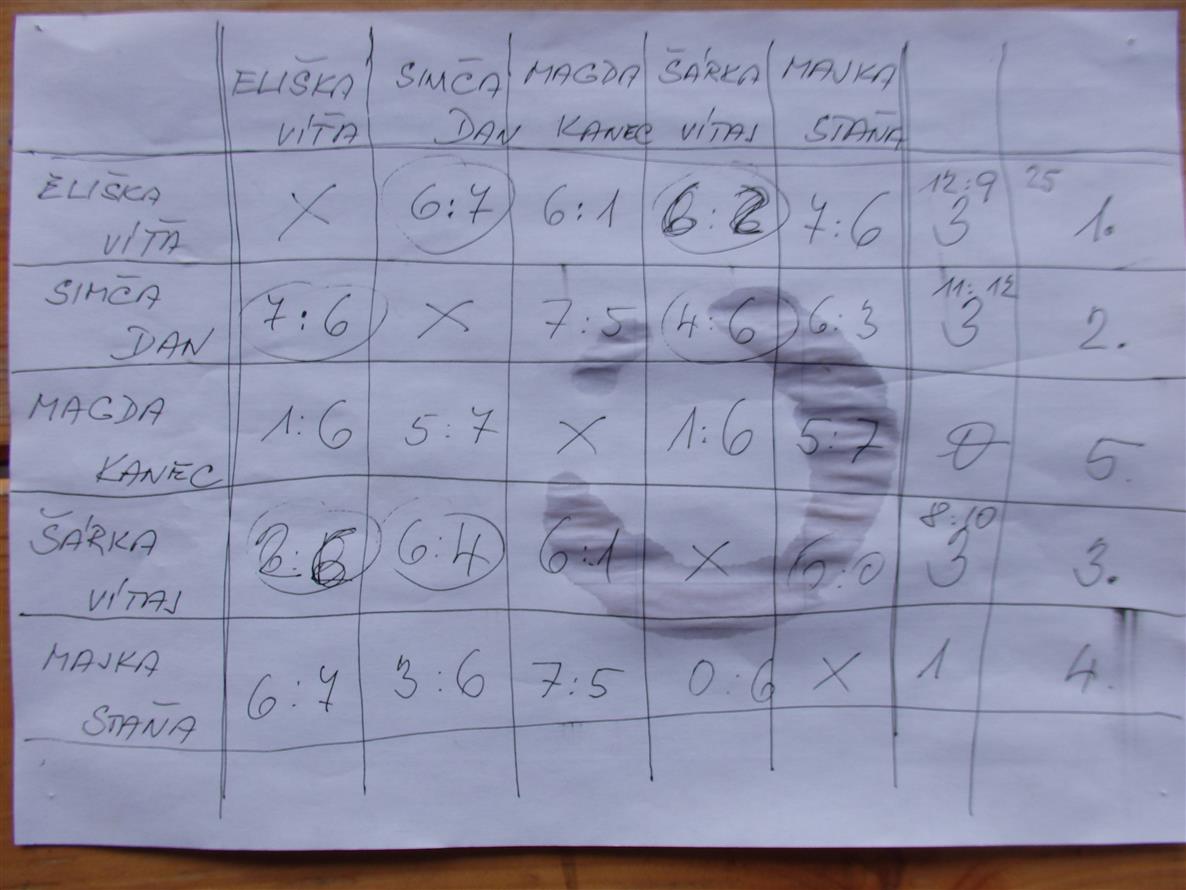 ELIŠKA SIMČA MAGDA ŠÁRKA MAJKA
VÍŤA DAN KANEC VÍTAJ STAŇA
ELIŠKA 12:9 25
VÍŤA X 6:7 6:1 6:2 7:6 3 1.
SIMČA 11:12
DAN 7:6 X 7:5 4:6 6:3 3 2.
MAGDA
KANEC 1:6 5:7 X 1:6 5:7 0 5.
ŠÁRKA 8:10
VÍTAJ 2:6 6:4 6:1 X 6:0 3 3.
MAJKA
STAŇA 6:7 3:6 7:5 0:6 X 1 4.